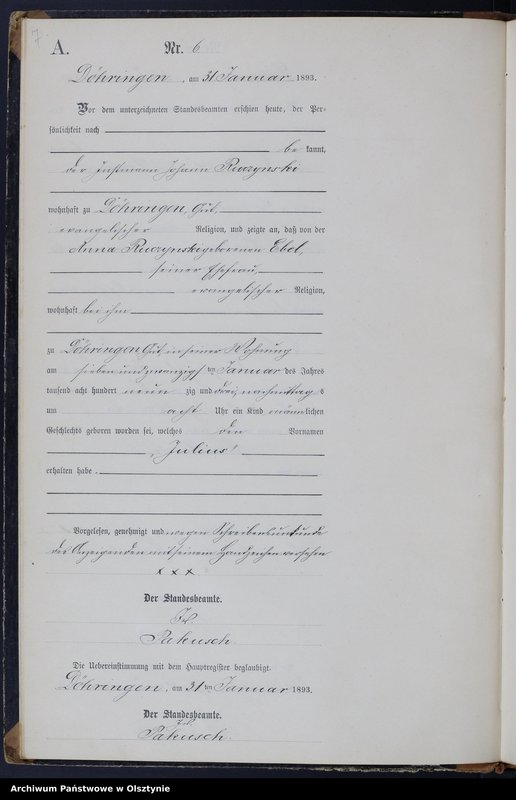 7.
A.
Nr. 6
Döhringen, am 31 Januar 1893.
Vor dem unterzeichneten Standesbeamten erschien heute, der Per-
sönlichkeit nach
be kannt,
der Instmann Johann Ruczynski
wohnhaft zu Döhringen, Gut,
evangelischer Religion, und zeigte an, daß von der
Anna Ruczynski geborenen Ebel,
seiner Ehefrau,
evangelischer Religion,
wohnhaft bei ihm
zu Döhringen Gut in seiner Wohnung
am sieben und zwanzigsten Januar des Jahres
tausend acht hundert neun zig und drei, nachmittag s
um acht Uhr ein Kind männlichen
Geschlechts geboren worden sei, welches den Vornamen
"Julius"
erhalten habe.
Vorgelesen, genehmigt und wegen Schreibensunkunde
des Anzeigenden mit seinem Handzeichen versehen
x x x
Der Standesbeamte.
Pakusch
Die Uebereinstimmung mit dem Hauptregister beglaubigt.
Döhringen, am 31 ten Januar 1893.
Der Standesbeamte.
Pakusch.
Archiwum Państwowe w Olsztynie